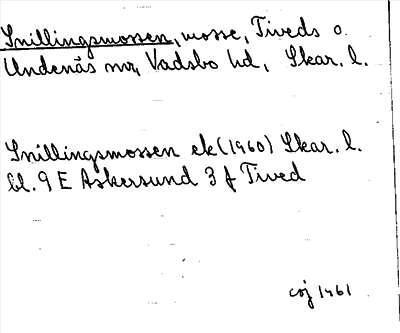 Snillingsmossen, mosse, Tiveds o.
Undenäs snr, Vadsbo hd, Skar. l.
Snillingsmossen ek (1960) Skar. l.
bl. 9 E Askersund 3 f Tived
coj 1961